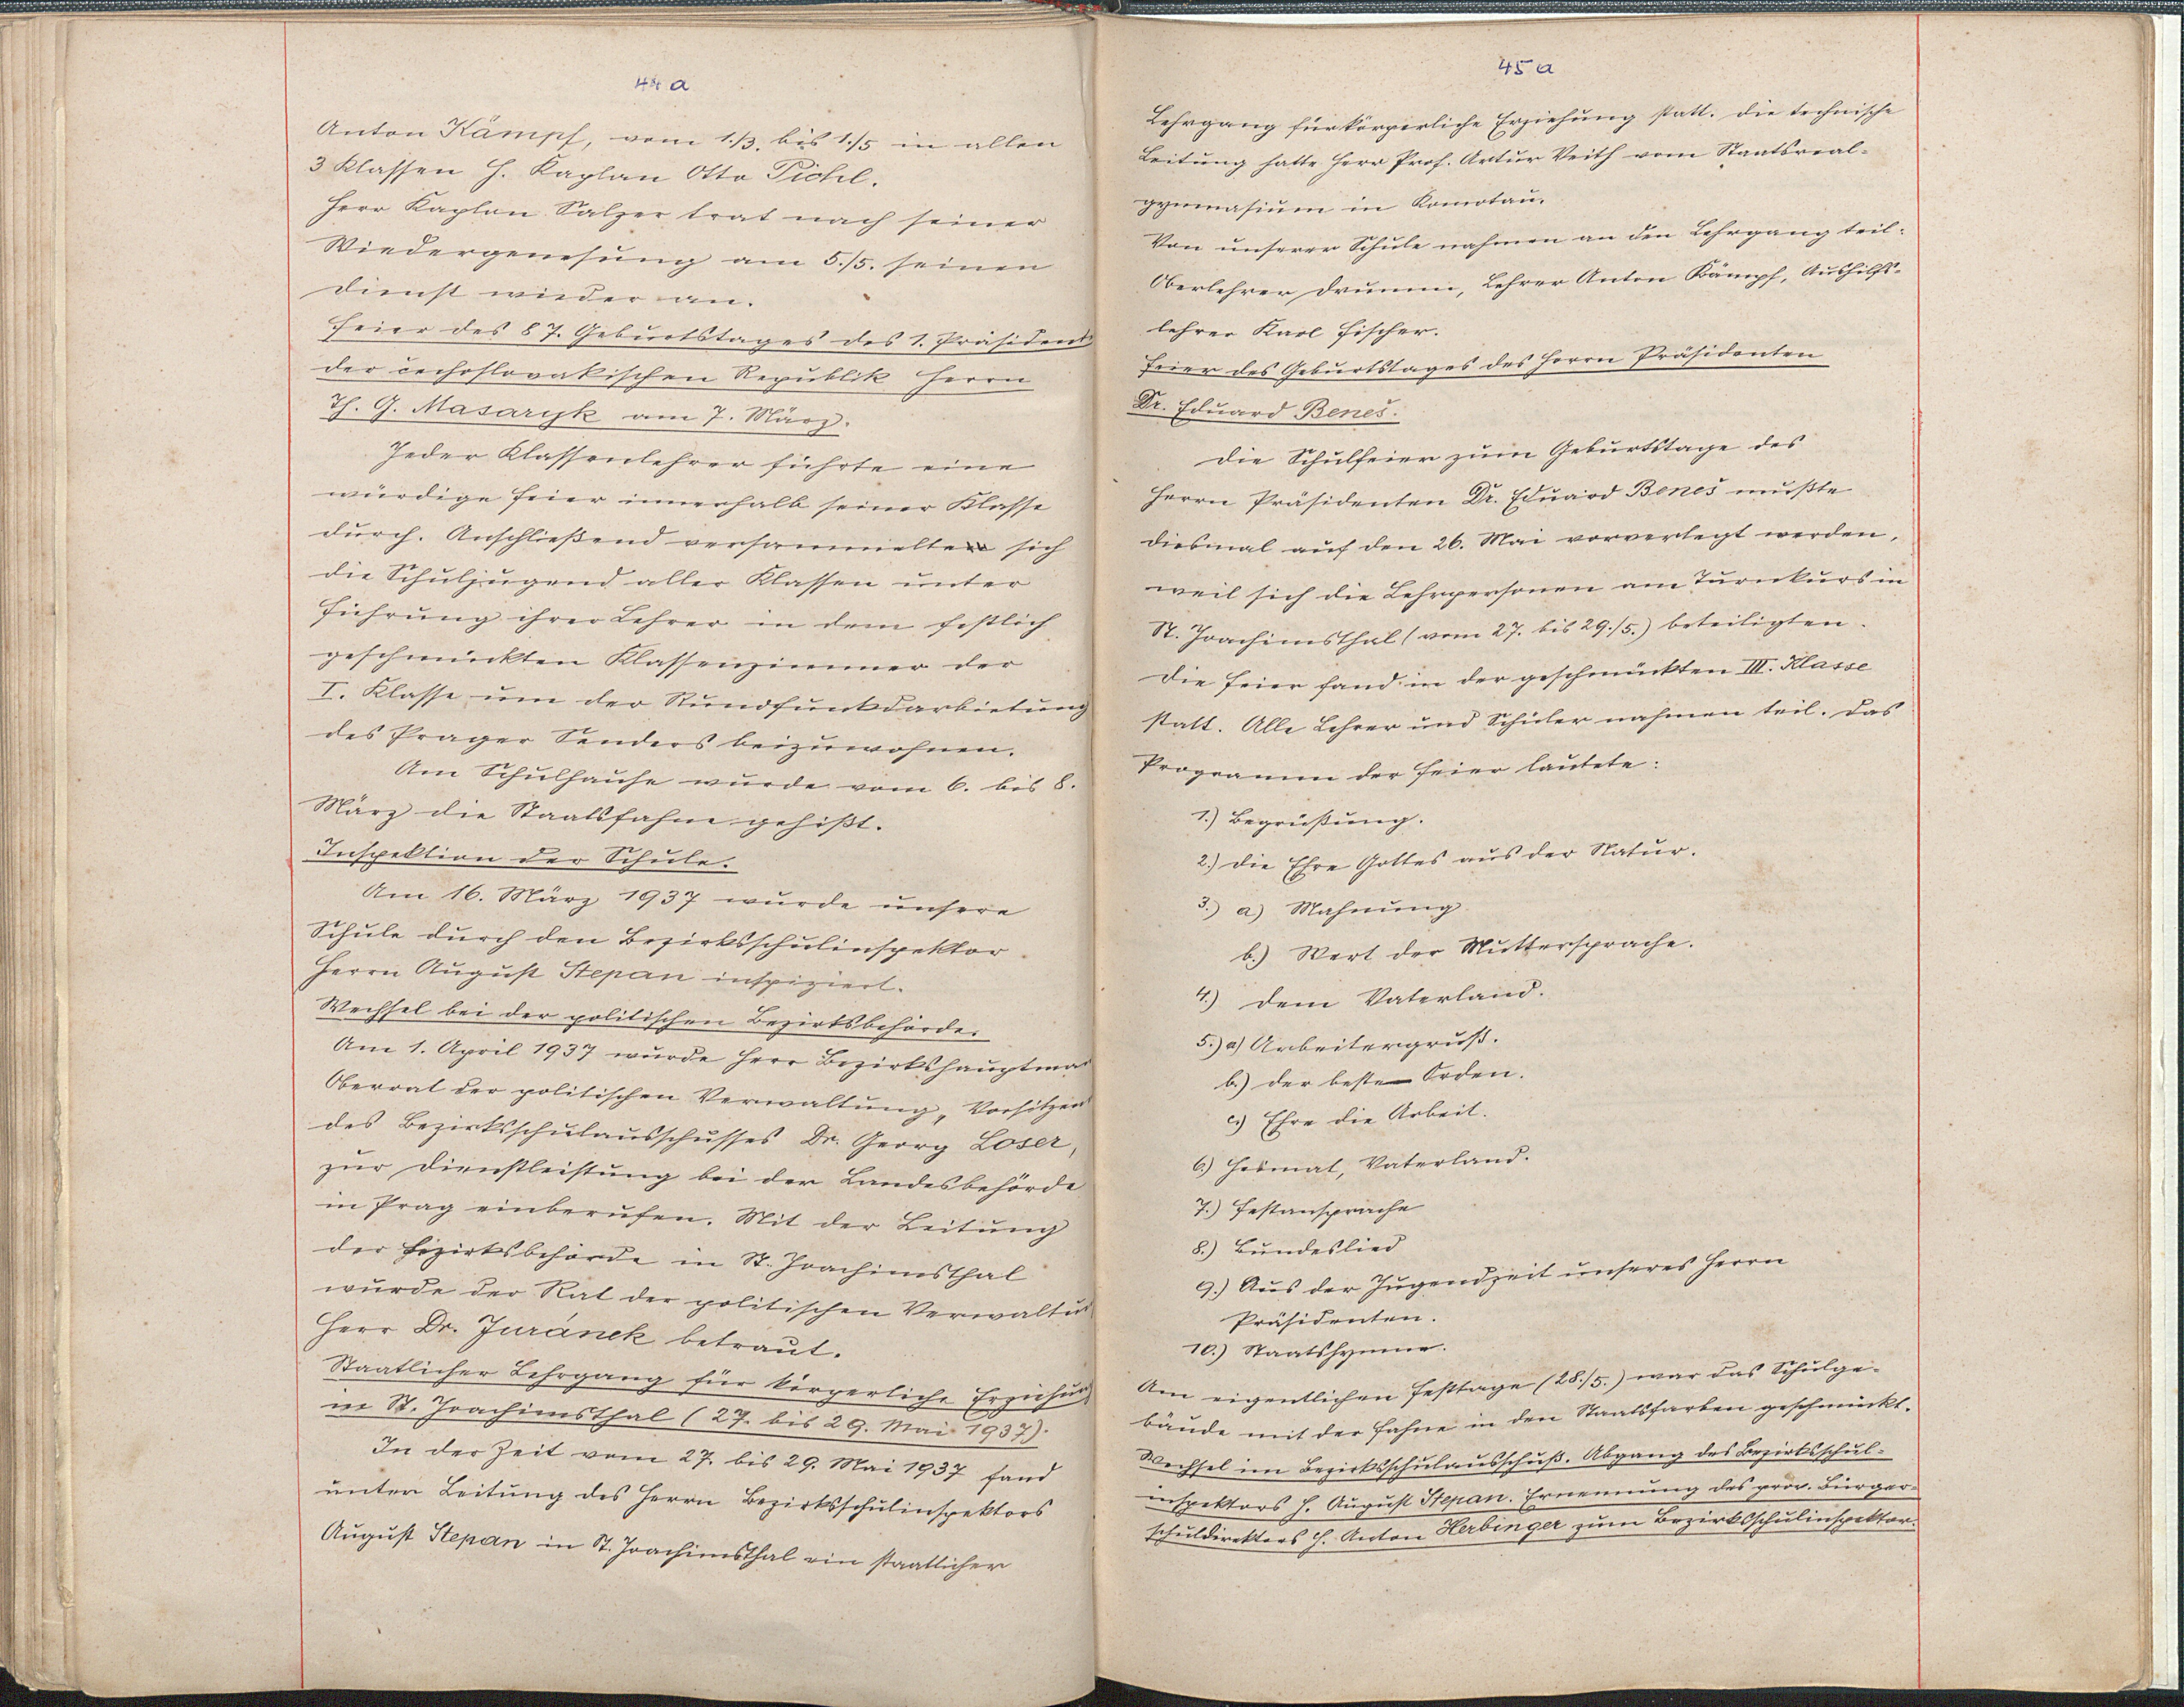 44a
Anton Kämpf, vom 1./3. bis 1./5 in allen
3 Klassen H. Kaplan Otto Pichl.
Herr Kaplan Salzer trat nach seiner
Wiedergenesung am 5./5. seinen
Dienst wieder an.
Feier des 87. Geburtstages des 1. Präsident
der čechoslovakischen Republik Herrn
Th. G. Masaryk am 7. März.
Jeder Klassenlehrer führte eine
würdige Feier innerhalb seiner Klasse
durch. Anschließend versammelte sich
die Schuljugend aller Klassen unter
Führung ihrer Lehrer in dem festlich
geschmückten Klassenzimmer der
I. Klasse um der Rundfunkdarbietung
des Prager Senders beizuwohnen.
Am Schulhause wurde vom 6. bis 8.
März die Staatsfahne gehißt.
Inspektion der Schule.
Am 16. März 1937 wurde unsere
Schule durch den Bezirksschulinspektor
Herrn August Stepan inspiziert.
Wechsel bei der politischen Bezirksbehörde.
Am 1. April 1937 wurde Herr Bezirkshauptman
Oberrat der politischen Verwaltung, Vorsitzen
des Bezirksschulausschusses Dr. Georg Loser,
zur Dienstleistung bei der Landesbehörde
in Prag einberufen. Mit der Leitung
der Bezirksbehörde in St. Joachimsthal
wurde der Rat der politischen Verwaltun
Herr Dr. Juránek betraut.
Staatlicher Lehrgang für körperliche Erziehung
in St. Joachimsthal (27. bis 29. Mai 1937).
In der Zeit vom 27. bis 29. Mai 1937 fand
unter Leitung des Herrn Bezirksschulinspektors
August Stepan in St. Joachimsthal ein staatlicher
45a
Lehrgang für körperliche Erziehung statt. Die technische
Leitung hatte Herr Prof. Artur Veith vom Staatsreal-
gymnasium in Komotau.
Von unserer Schule nahmen an den Lehrgang teil:
Oberlehrer Drumm, Lehrer Anton Kämpf, Aushilfs-
lehrer Karl Fischer.
Feier des Geburtstages des Herrn Präsidenten
Dr. Eduard Beneš.
Die Schulfeier zum Geburtstage des
Herrn Präsidenten Dr. Eduard Beneš mußte
diesmal auf den 26. Mai vorverlegt werden,
weil sich die Lehrpersonen am Turnkurs in
St. Joachimsthal (vom 27. bis 29./5.) beteiligten.
Die Feier fand in der geschmückten III. Klasse
statt. Alle Lehrer und Schüler nahmen teil. Das
Programm der Feier lautete:
1.) Begrüßung.
2.) Die Ehre Gottes aus der Natur.
3.) a) Mahnung
b.) Wert der Muttersprache.
4.) Dem Vaterland.
5.) a) Arbeitergruß.
b.) Der beste Orden.
c.) Ehre die Arbeit.
6.) Heimat, Vaterland.
7.) Festansprache
8.) Bundeslied
9.) Aus der Jugendzeit unseres Herrn
Präsidenten.
10.) Staatshymne.
Am eigentlichen Festtage (28./5.) war das Schulge-
bäude mit der Fahne in den Staatsfarben geschmückt.
Wechsel im Bezirksschulausschuß. Abgang des Bezirksschul-
inspektors H. August Stepan. Ernennung des prov. Bürger-
schuldirektors H. Anton Herbinger zum Bezirksschulinspektor.